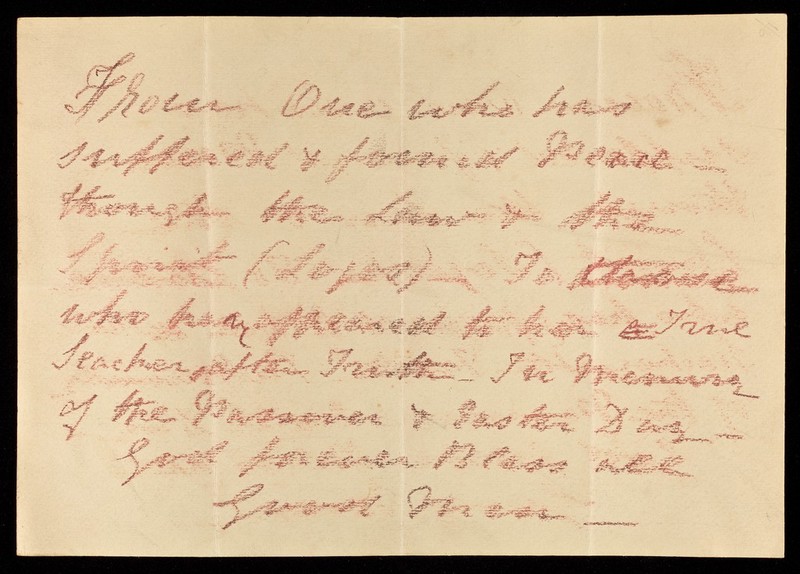 From One who has
suffered & found Peace —
through the Law & the
Spirit (Logos) — To
who has appeared to her a True
Seacher, after Truth — In Memory
of the Passover & Easter Day —
God forever Bless all
Good Men —